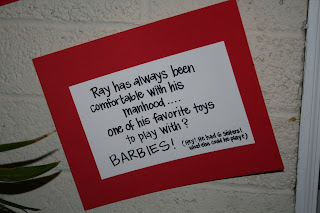 Ray has always been
comfortable with his
manhood....
one of his favorite toys
to play with?
BARBIES! (Hey! He had 6 sisters!
what else could he play?)